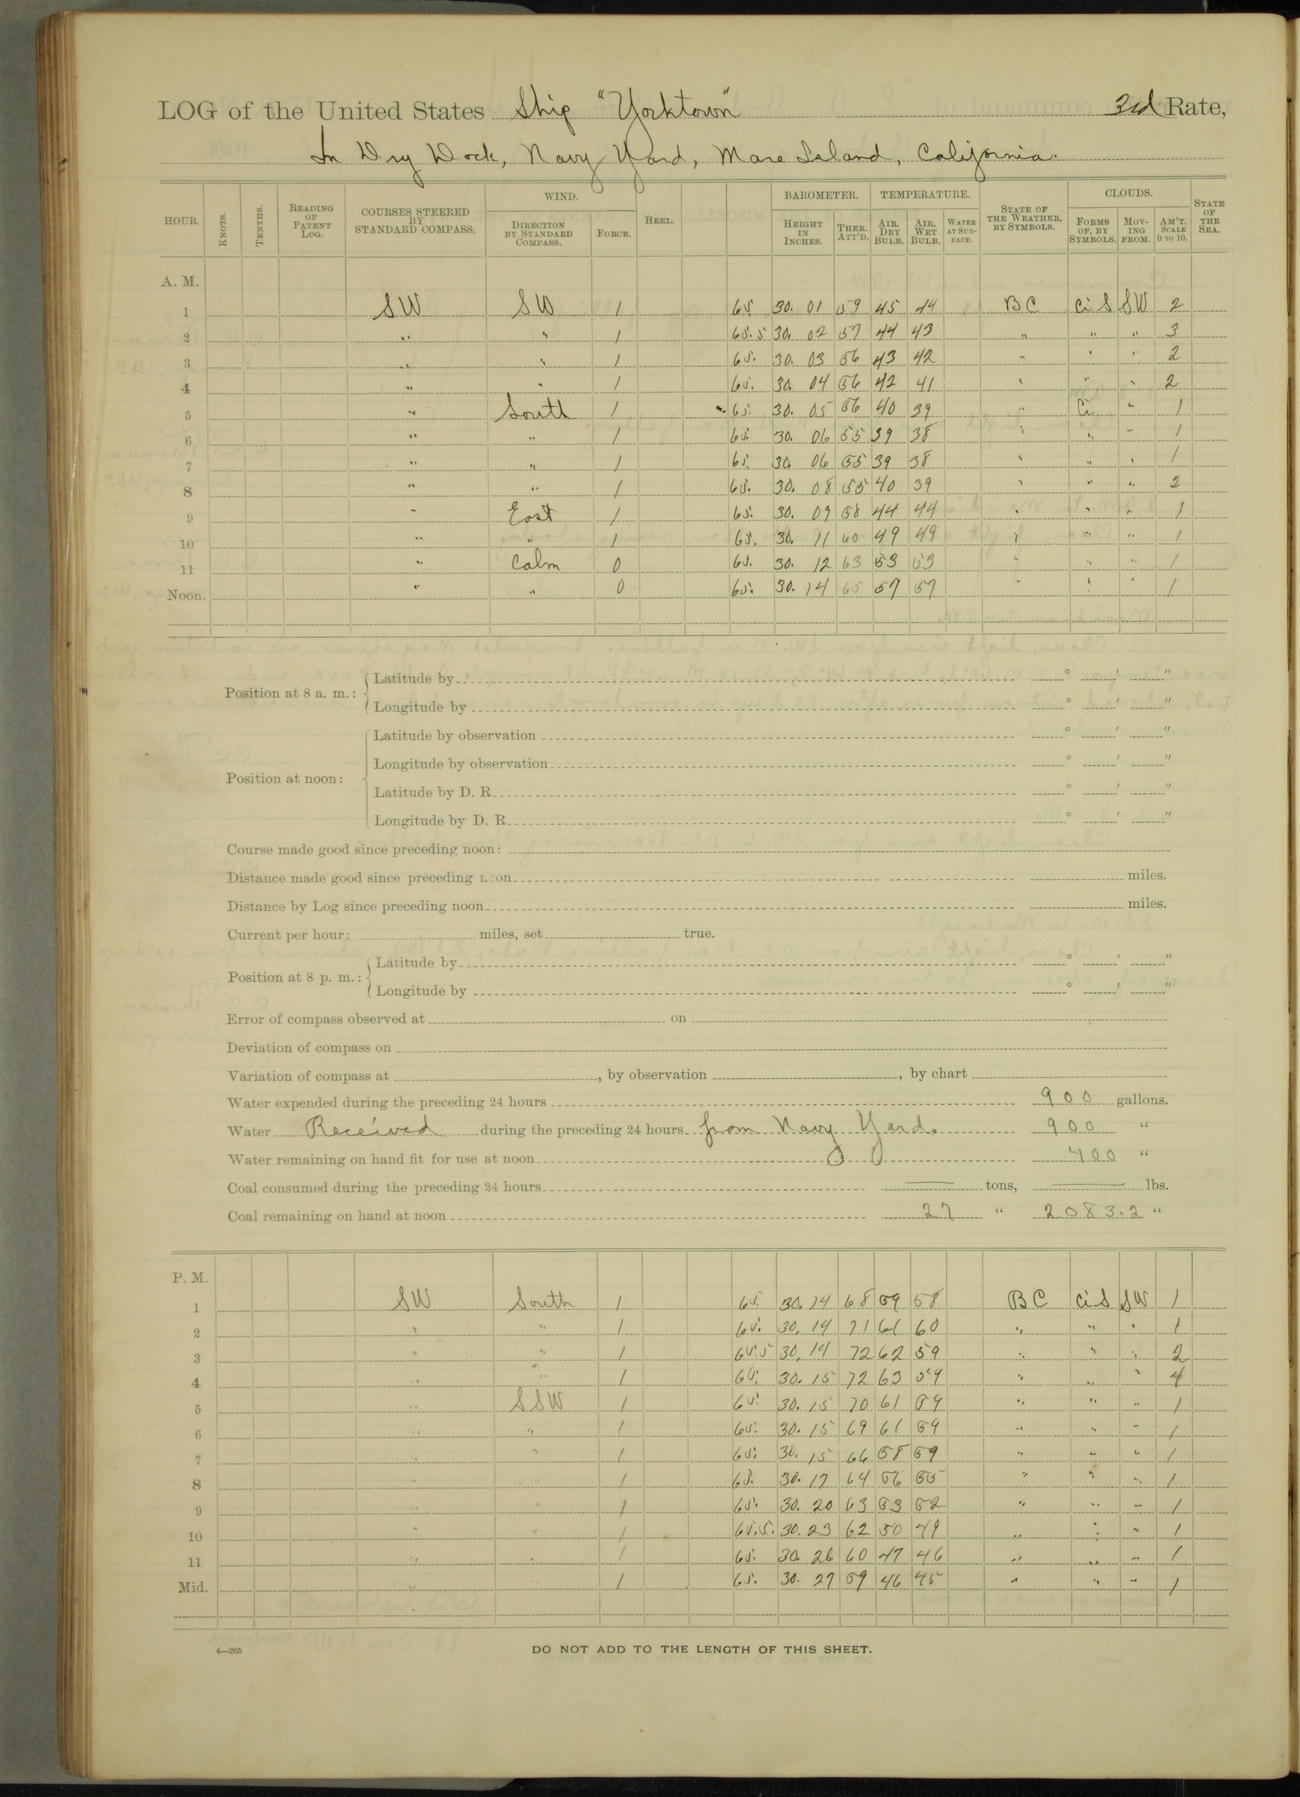 LOG of the United States Ship "Yorktown" 3rd Rate,
In Dry Dock, Navy Yard, Mare Island, California.
HOUR. KNOTS. TENTHS. READING OF PATENT LOG. COURSES STEERED BY STANDARD COMPASS. WIND. DIRECTION BY STANDARD COMPASS. FORCE. HEEL. BAROMETER. HEIGHT IN INCHES. THER. ATT'D. TEMPERATURE. AIR, DRY BULB. AIR, WET BULB. WATER AT SURFACE. STATE OF THE WEATHER, BY SYMBOLS. CLOUDS. FORMS OF, BY SYMBOLS. MOVING FROM. AM'T. SCALE 0 TO 10. STATE OF THE SEA.
A. M.
1 SW SW 1 65. 30. 01 59 45 44 BC Ci S SW 2
2 " " 1 65.5 30. 02 57 44 43 " " " 3
3 " " 1 65. 30. 03 56 43 42 " " " 2
4 " " 1 65. 30. 04 56 42 41 " " " 2
5 " South 1 65. 30. 05 56 40 39 " Ci. " 1
6 " " 1 65. 30. 06 55 39 38 " " " 1
7 " " 1 65. 30. 06 55 39 38 " " " 1
8 " " 1 65. 30. 08 55 40 39 " " " 2
9 " East 1 65. 30. 09 58 44 44 " " " 1
10 " " 1 65. 30. 11 60 49 49 " " " 1
11 " Calm 0 65. 30. 12 63 53 53 " " " 1
Noon. " " 0 65. 30. 14 65 57 57 " " " 1
Position at 8 a. m.: Latitude by ° ' "
Longitude by ° ' "
Position at noon: Latitude by observation ° ' "
Longitude by observation ° ' "
Latitude by D. R. ° ' "
Longitude by D. R. ° ' "
Course made good since preceding noon:
Distance made good since preceding noon miles.
Distance by Log since preceding noon miles.
Current per hour: miles, set true.
Position at 8 p. m.: Latitude by ° ' "
Longitude by ° ' "
Error of compass observed at on
Deviation of compass on
Variation of compass at , by observation , by chart
Water expended during the preceding 24 hours 900 gallons.
Water Received during the preceding 24 hours from Navy Yard. 900 "
Water remaining on hand fit for use at noon 400 "
Coal consumed during the preceding 24 hours — tons, — lbs.
Coal remaining on hand at noon 27 " 2083.2 "
P. M.
1 SW South 1 65. 30. 14 68 59 58 BC Ci S SW 1
2 " " 1 65. 30. 14 71 61 60 " " " 1
3 " " 1 65.5 30. 14 72 62 59 " " " 2
4 " " 1 65. 30. 15 72 63 59 " " " 4
5 " SSW 1 65. 30. 15 70 61 59 " " " 1
6 " " 1 65. 30. 15 69 61 59 " " " 1
7 " " 1 65. 30. 15 66 58 59 " " " 1
8 " " 1 65. 30. 17 64 56 55 " " " 1
9 " " 1 65. 30. 20 63 53 52 " " " 1
10 " " 1 65.5. 30. 23 62 50 49 " " " 1
11 " " 1 65. 30. 26 60 47 46 " " " 1
Mid. " " 1 65. 30. 27 59 46 45 " " " 1
4—265
DO NOT ADD TO THE LENGTH OF THIS SHEET.